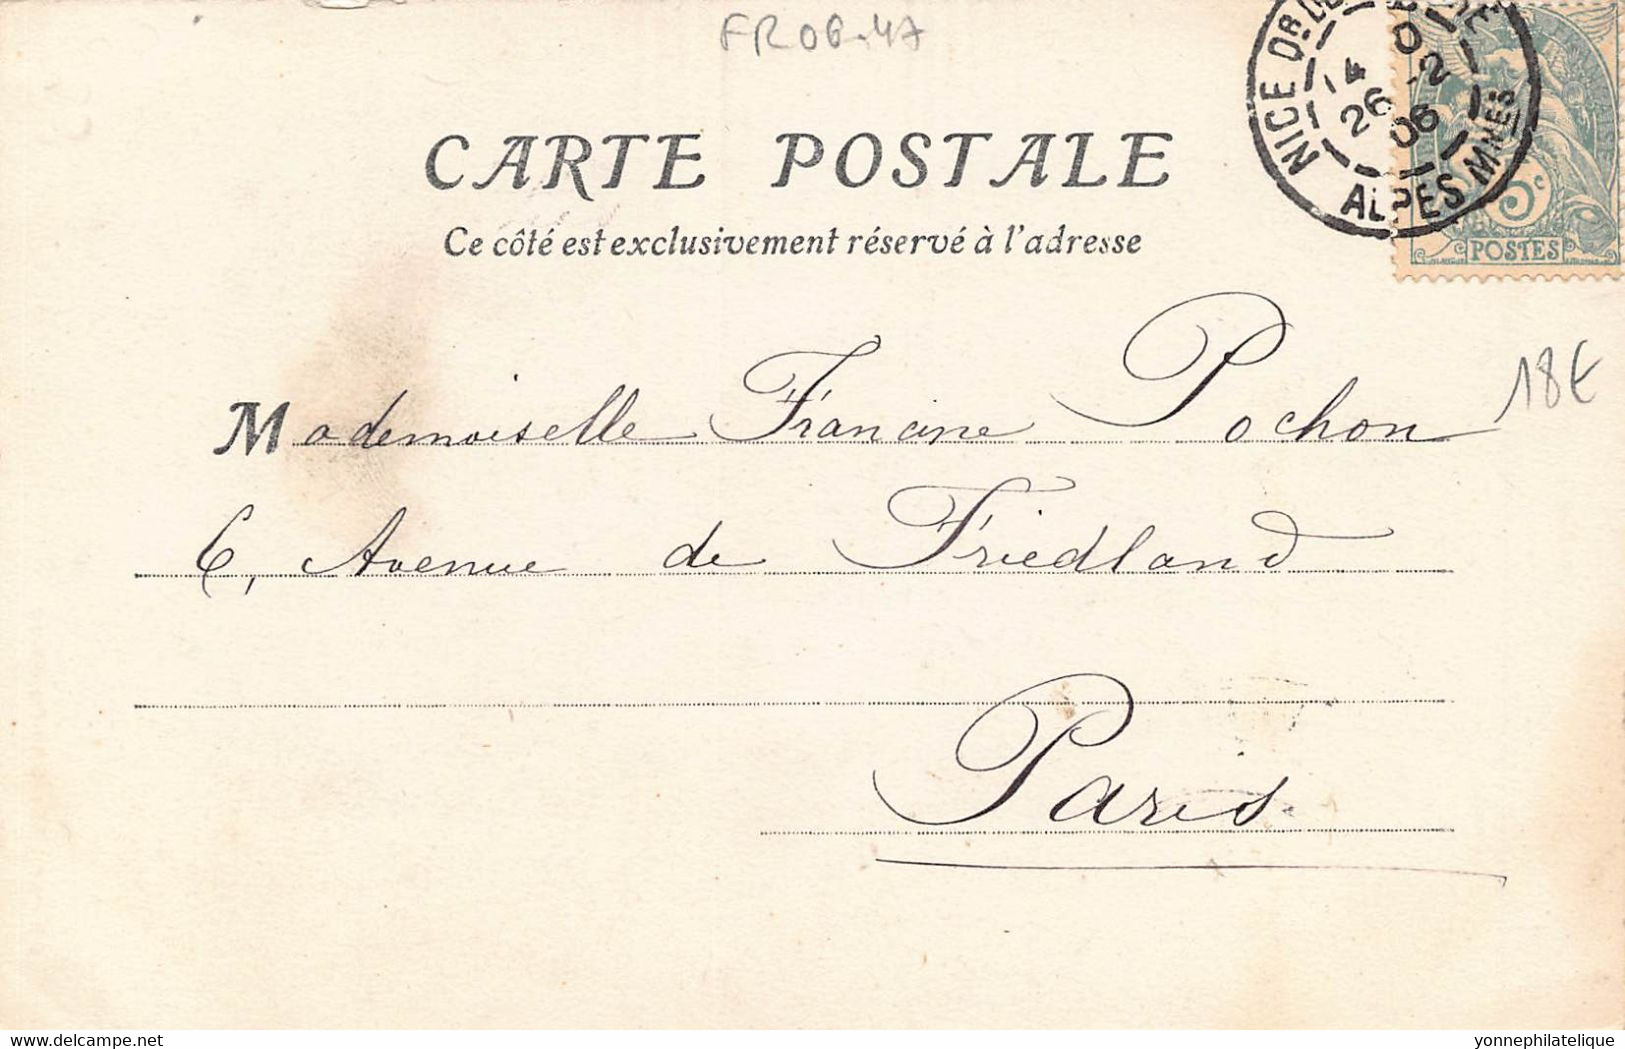 FR06-47
NICE
14
26 -2
06
ALPES MMES
5c
POSTES
CARTE POSTALE
Ce côté est exclusivement réservé à l'adresse
18€
Mademoiselle Francine Pochon
6, Avenue de Friedland
Paris
delcampe.net
yonnephilatelique